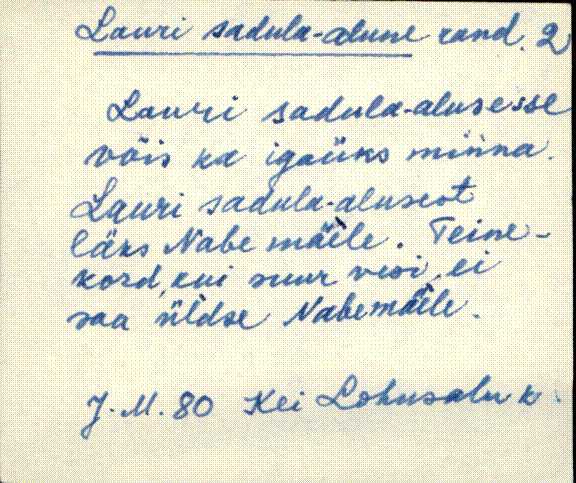 Lauri sadula-alune rand. 2
Lauri sadula-alusesse
võis ka igaüks minna.
Lauri sadula-alusest
läks Nabe mäile. Teine-
kord, kui suur vesi, ei
saa üldse Nabemäile.
J. M. 80 Kei Lohusalu k.